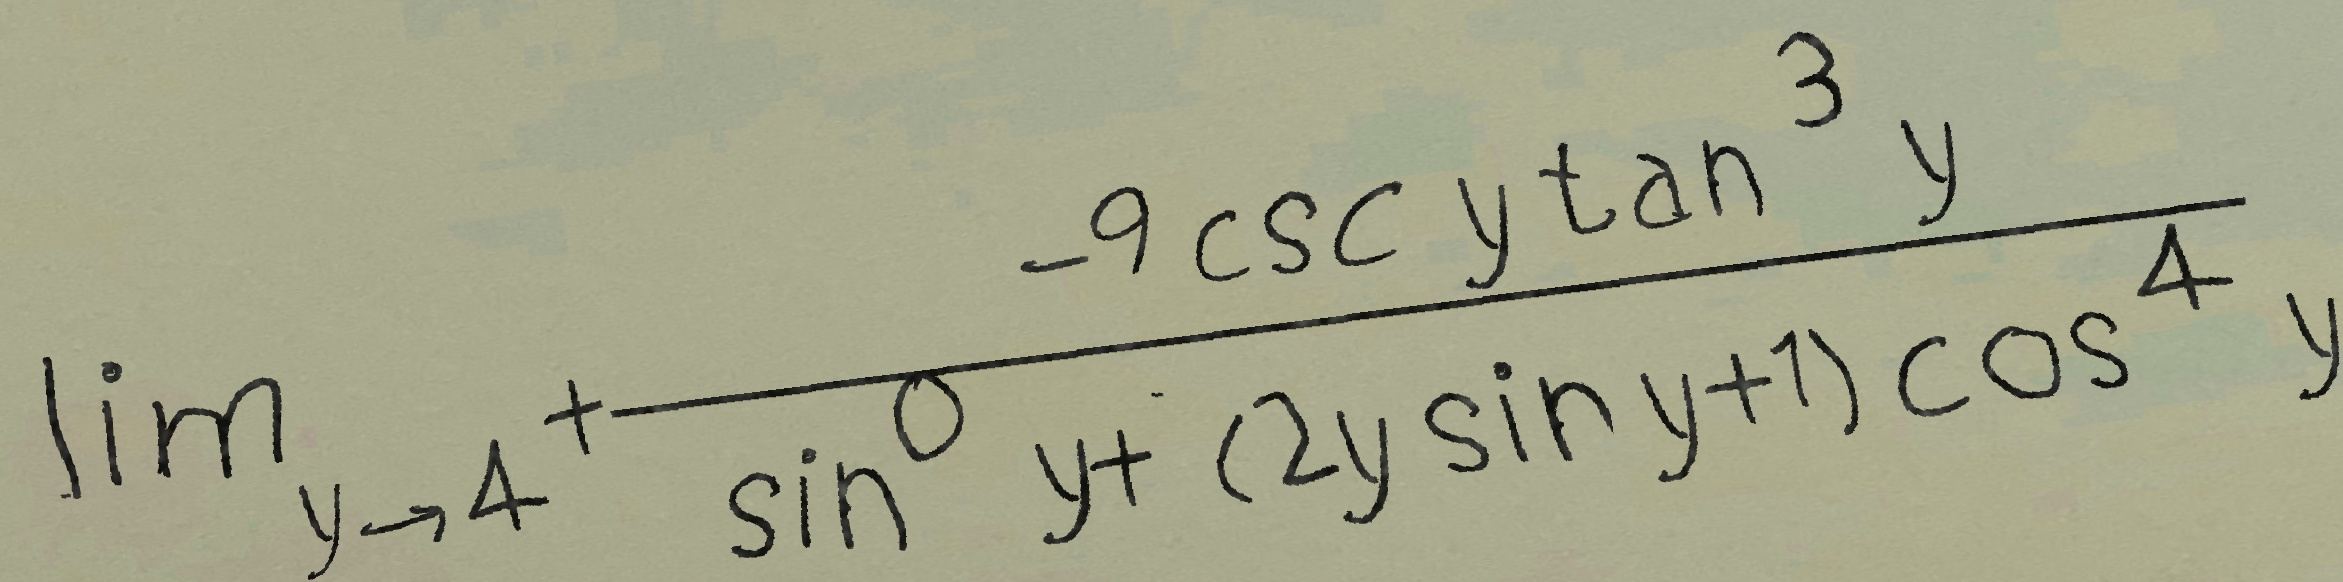 \lim_{y \to 4^+} \frac{-9 \csc y \tan^3 y}{\sin^0 y + (2y \sin y + 1) \cos^4 y}